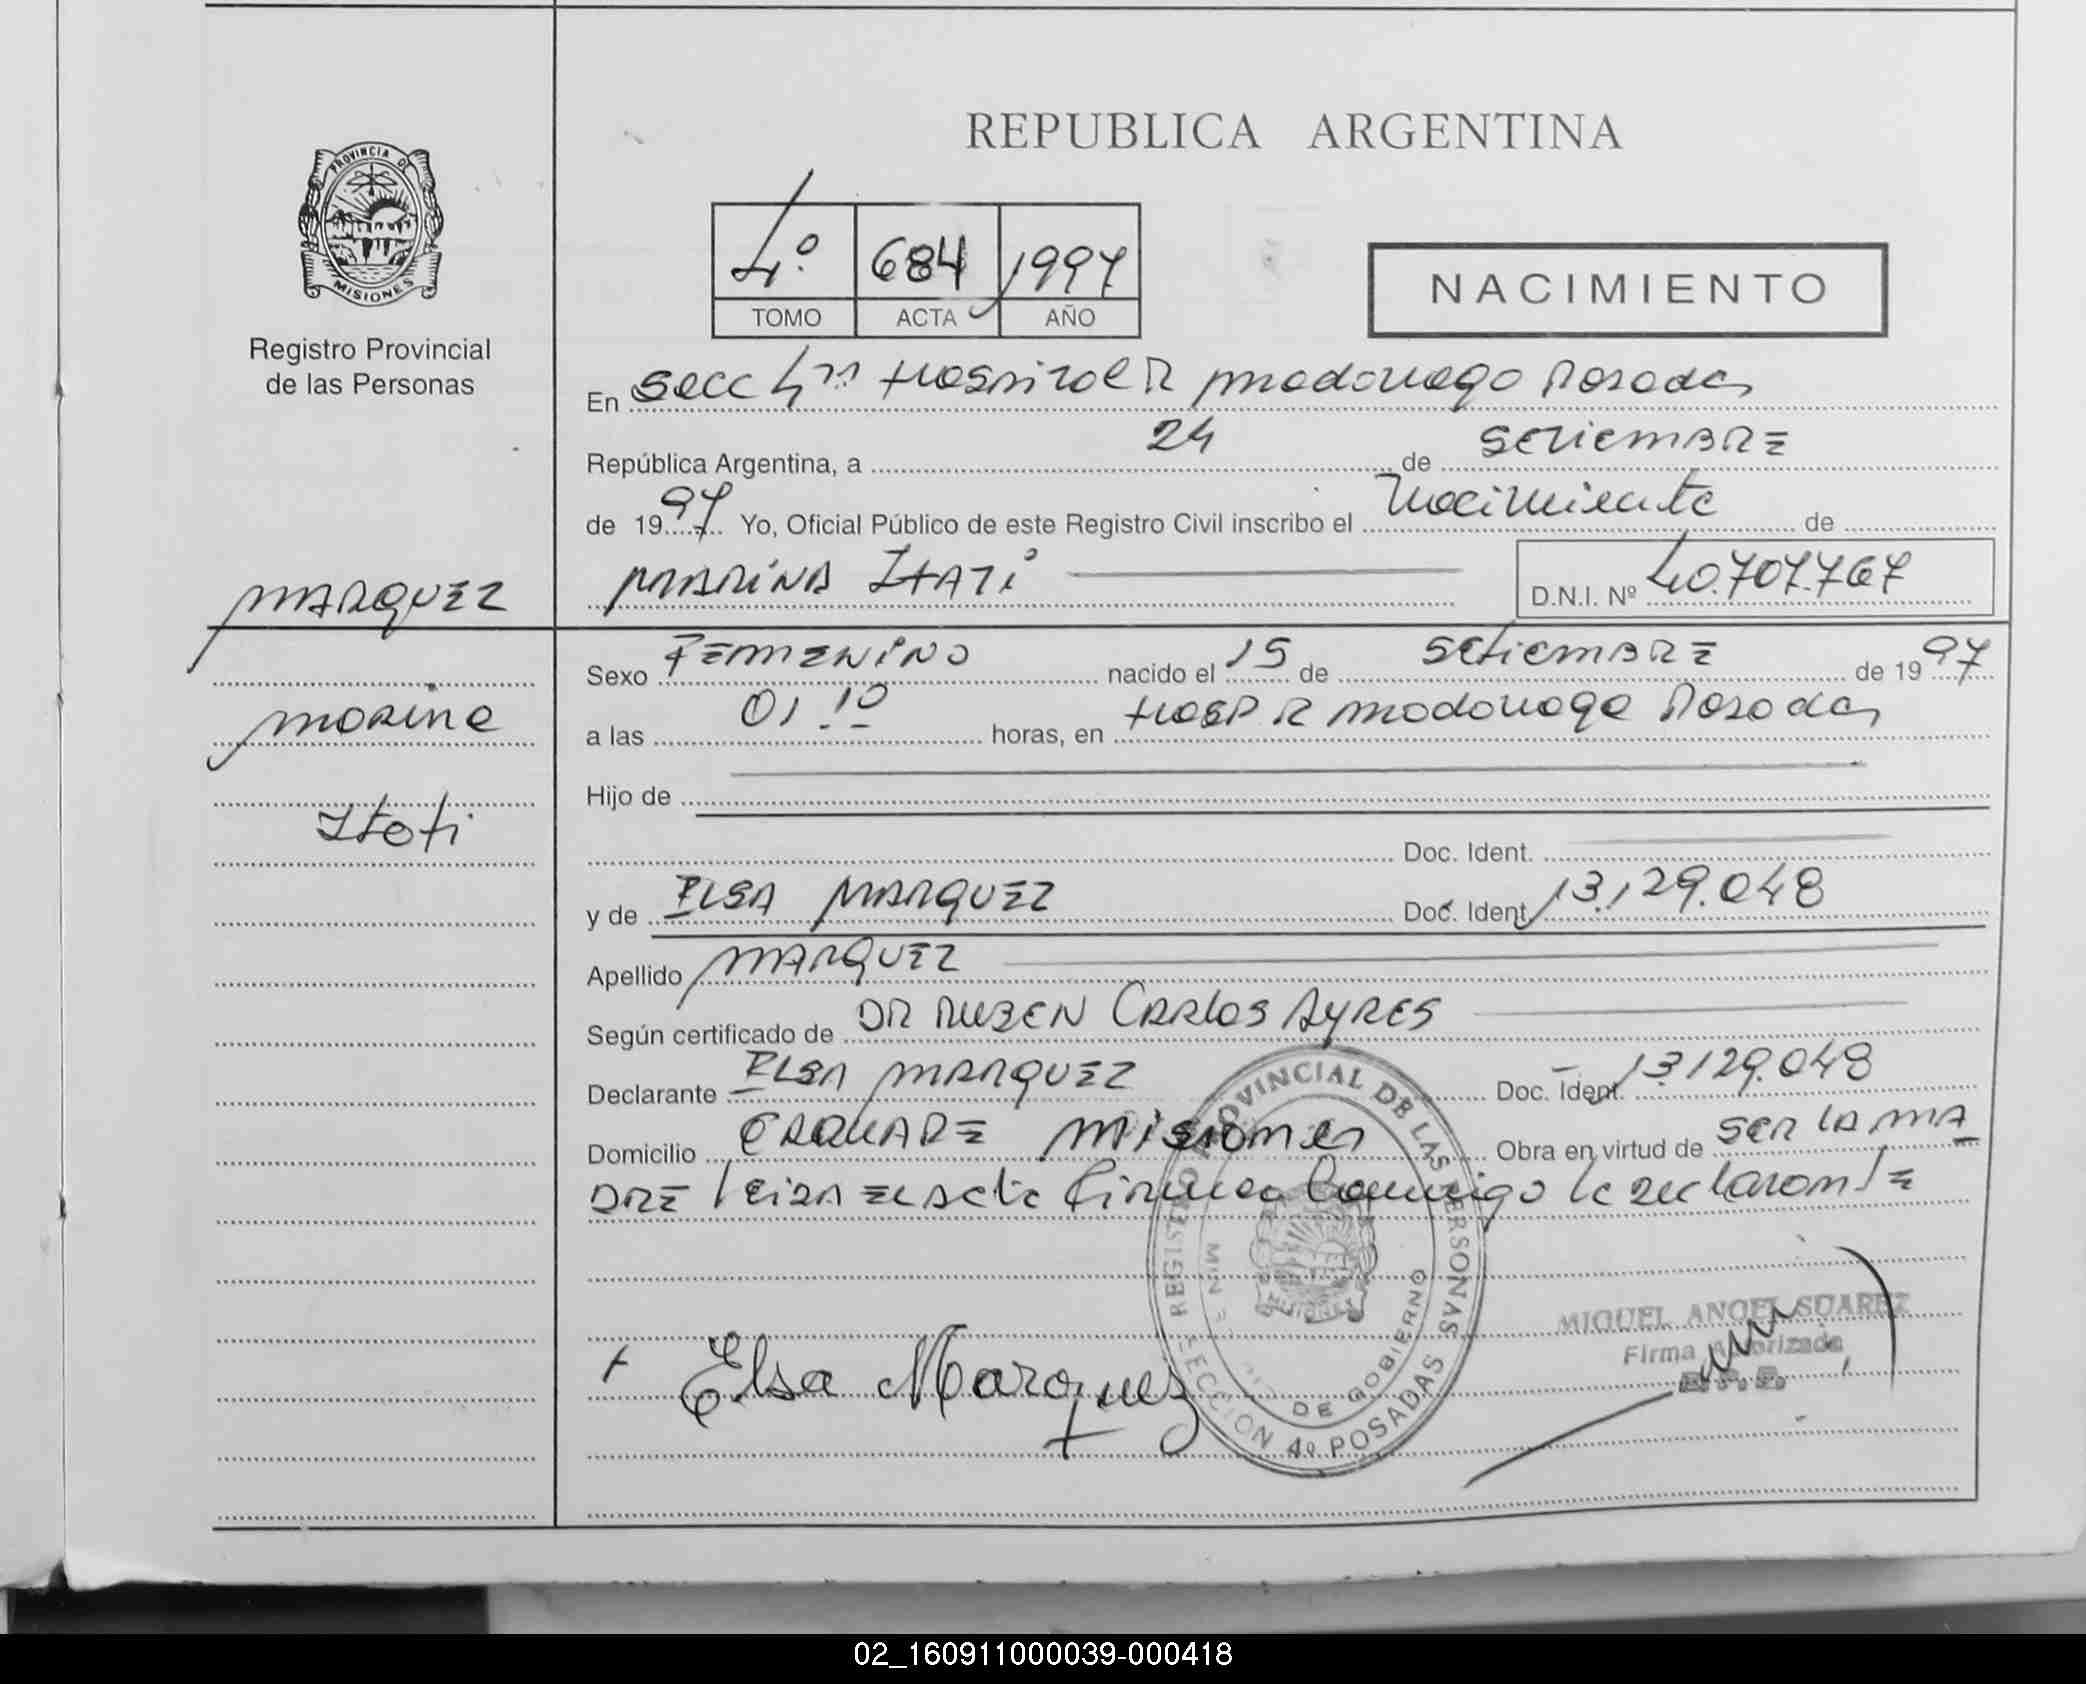 REPUBLICA ARGENTINA
PROVINCIA DE
MISIONES
Registro Provincial
de las Personas
4º 684 1997
TOMO ACTA AÑO
NACIMIENTO
En Secc 4ta Hospital R Madariaga Posadas
República Argentina, a 24 de SETIEMBRE
de 1997 Yo, Oficial Público de este Registro Civil inscribo el Nacimiento de
MARINA ITATÍ D.N.I. Nº 40.707.767
MARQUEZ
Marina
Itatí
Sexo FEMENINO nacido el 15 de SETIEMBRE de 1997
a las 01 10 horas, en Hosp R Madariaga Posadas
Hijo de
Doc. Ident.
y de ELSA MARQUEZ Doc. Ident. 13.129.048
Apellido MARQUEZ
Según certificado de DR RUBEN CARLOS AYRES
Declarante ELSA MARQUEZ Doc. Ident. 13.129.048
Domicilio MISIONES Obra en virtud de SER LA MA
DRE Leida el acta firma conmigo la declarante
REGISTRO PROVINCIAL DE LAS PERSONAS
SECCION 4º POSADAS
DE GOBIERNO
MISIONES
MIGUEL ANGEL SUAREZ
Firma Autorizada
R. P. P.
Elsa Marquez
02_160911000039-000418